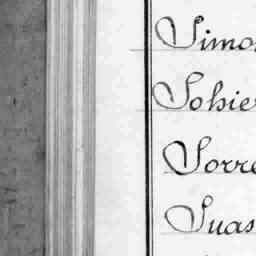 Simo
Sohie
Sorre
Suas